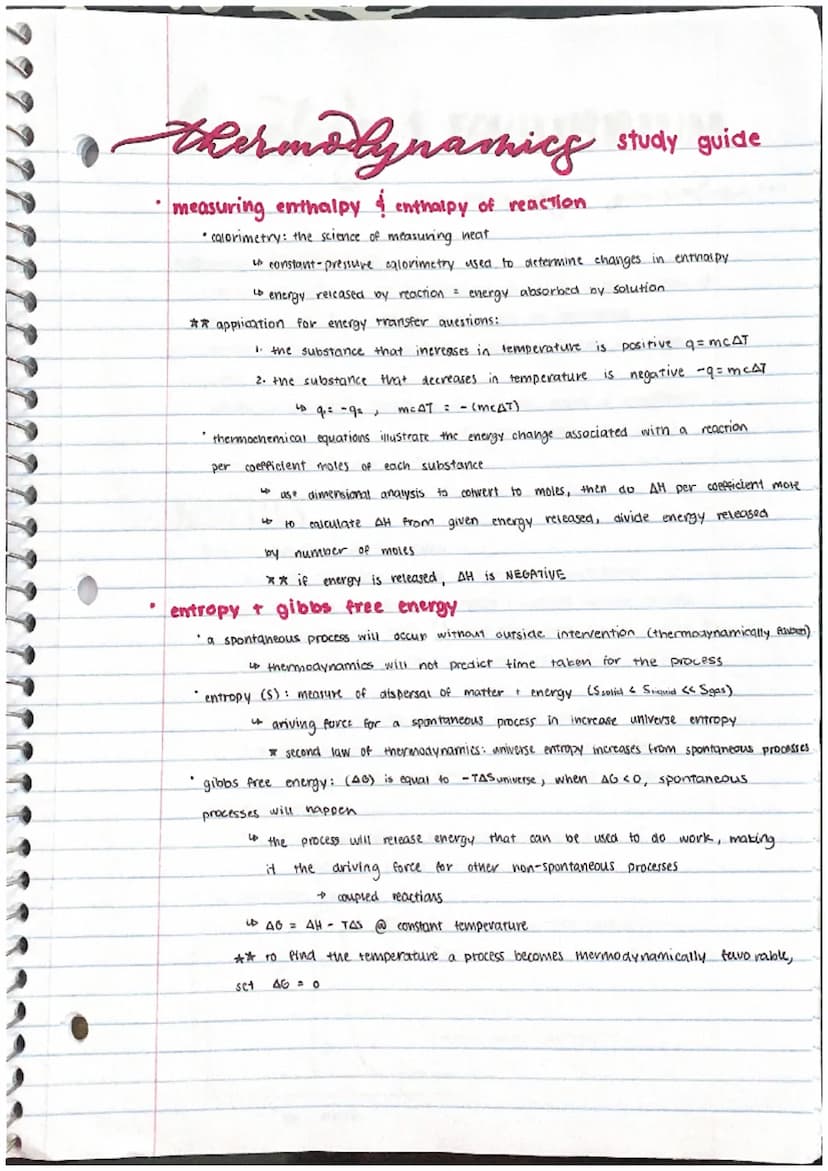 thermodynamics study guide
• measuring enthalpy & enthalpy of reaction
• calorimetry: the science of measuring heat
↳ constant-pressure calorimetry used to determine changes in enthalpy
↳ energy released by reaction = energy absorbed by solution
** application for energy transfer questions:
1. the substance that increases in temperature is positive q = mcΔT
2. the substance that decreases in temperature is negative -q = mcΔT
↳ q₁ = -q₂, mcΔT = -(mcΔT)
• thermochemical equations illustrate the energy change associated with a reaction
per coefficient moles of each substance
↳ use dimensional analysis to convert to moles, then do ΔH per coefficient mole
↳ to calculate ΔH from given energy released, divide energy released
by number of moles
** if energy is released, ΔH is NEGATIVE
• entropy + gibbs free energy
• a spontaneous process will occur without outside intervention (thermodynamically
↳ thermodynamics will not predict time taken for the process
• entropy (S): measure of dispersal of matter + energy (Ssolid < Sliquid << Sgas)
↳ driving force for a spontaneous process in increase universe entropy
* second law of thermodynamics: universe entropy increases from spontaneous processes
• gibbs free energy: (ΔG) is equal to -TΔSuniverse, when ΔG < 0, spontaneous
processes will happen
↳ the process will release energy that can be used to do work, making
it the driving force for other non-spontaneous processes
→ coupled reactions
↳ ΔG = ΔH - TΔS @ constant temperature
** to find the temperature a process becomes thermodynamically favorable,
set ΔG = 0